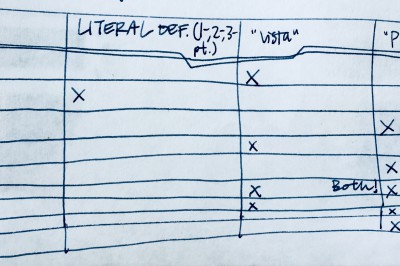 LITERAL DEF. (1-, 2-, 3- "Vista" "P
pt.)
X
X
X
X
X
Both!
X X
X X
X